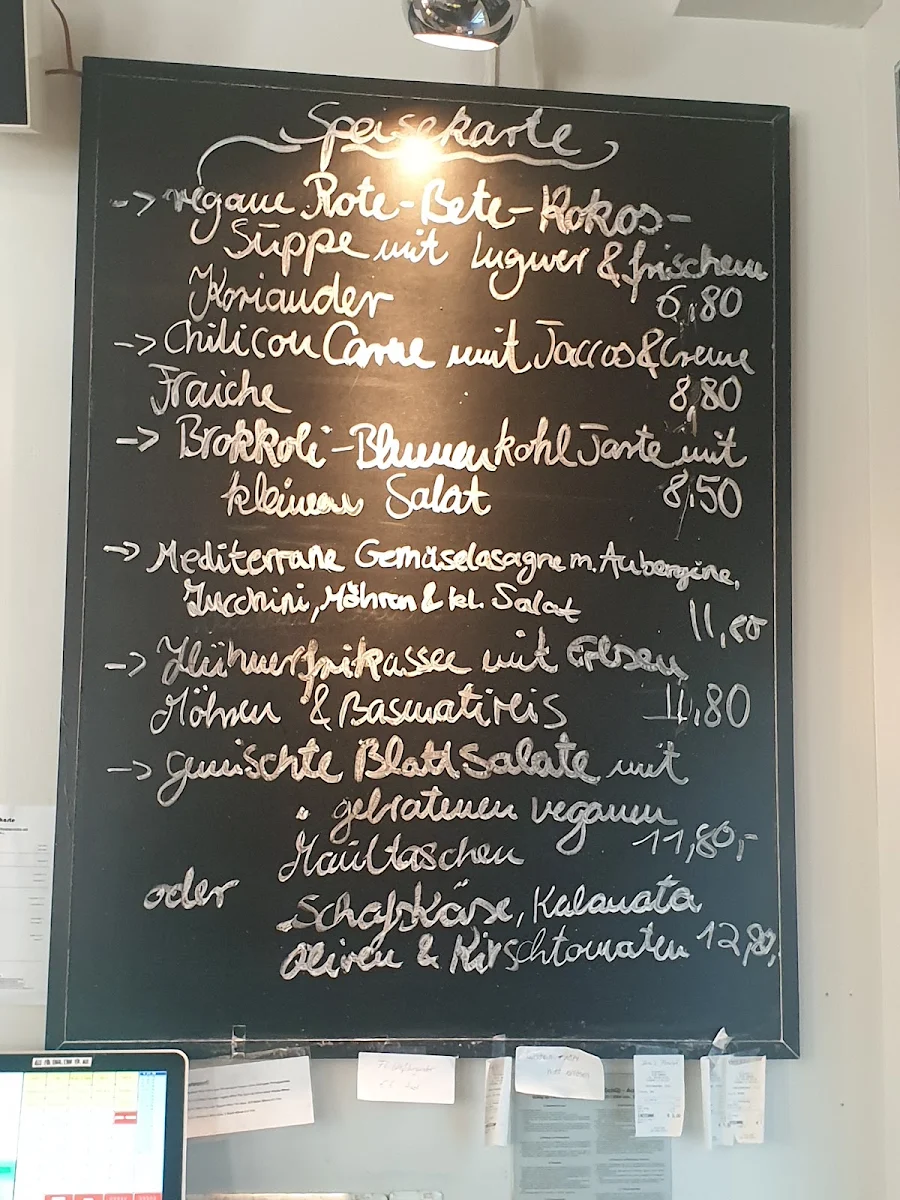 Speisekarte
-> vegane Rote-Bete-Kokos-
Suppe mit Ingwer & frischem
Koriander 6,80
-> Chili con Carne mit Taccos & Creme
Fraiche 8,80
-> Brokkoli-Blumenkohl Tarte mit
kleinem Salat 8,50
-> Mediterrane Gemüselasagne m. Aubergine,
Zucchini, Möhren & kl. Salat
11,80
-> Hühnerfrikassee mit Erbsen,
Möhren & Basmatireis 11,80
-> gemischte Blattsalate mit
gebratenen veganen
Maultaschen 11,80,-
oder Schafskäse, Kalamata
Oliven & Kirschtomaten 12,80,